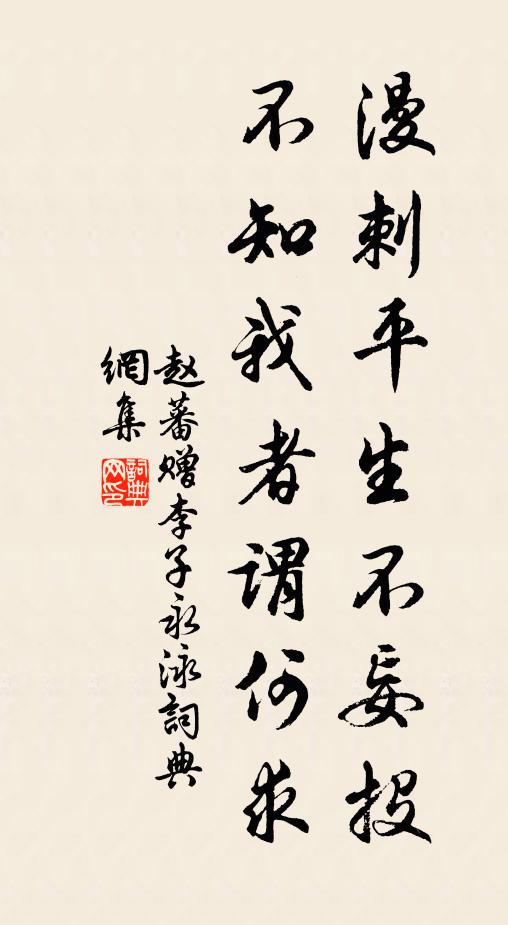 漫刺平生不妄投
不知我者謂何求
赵蕃赠李子永泳詞典
網集
詞典
网印